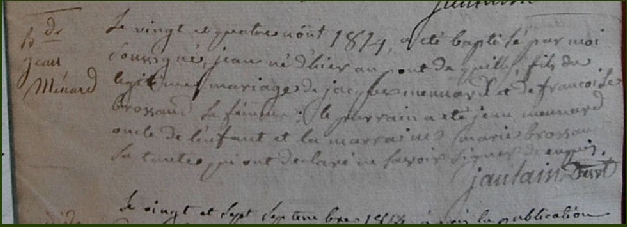 B de
jean
Ménard
Le vingt et quatre aôut 1814, a été baptisé par moi
soussigné, jean né d'hier au pont de fils du
legitime mariage de jacques mennard et de francoise
brossaud sa femme : le parrain a été jean mennard
oncle de l'enfant et la marraine marie brossau
sa tante qui ont declaré ne savoir signer de enquis.
jaulain
Le vingt et sept septembre 1814, après la publication